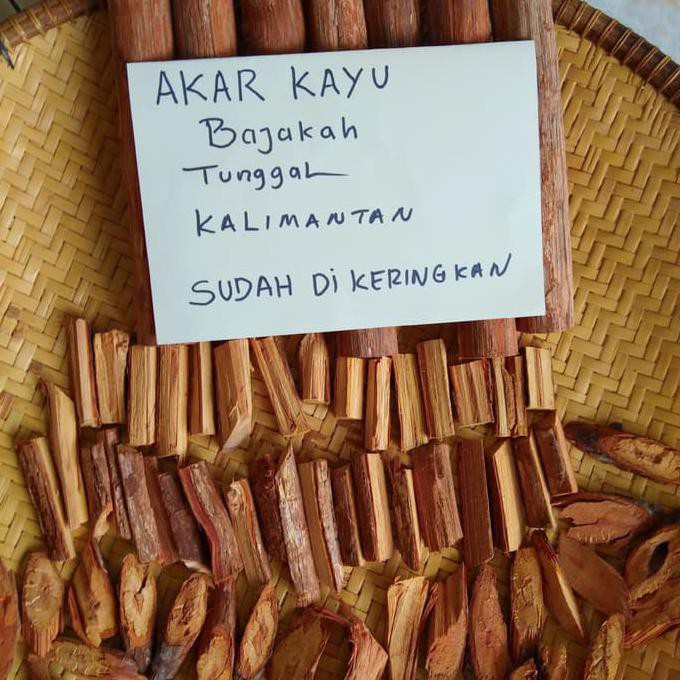 AKAR KAYU
Bajakah
Tunggal
KALIMANTAN
SUDAH Di KERINGKAN